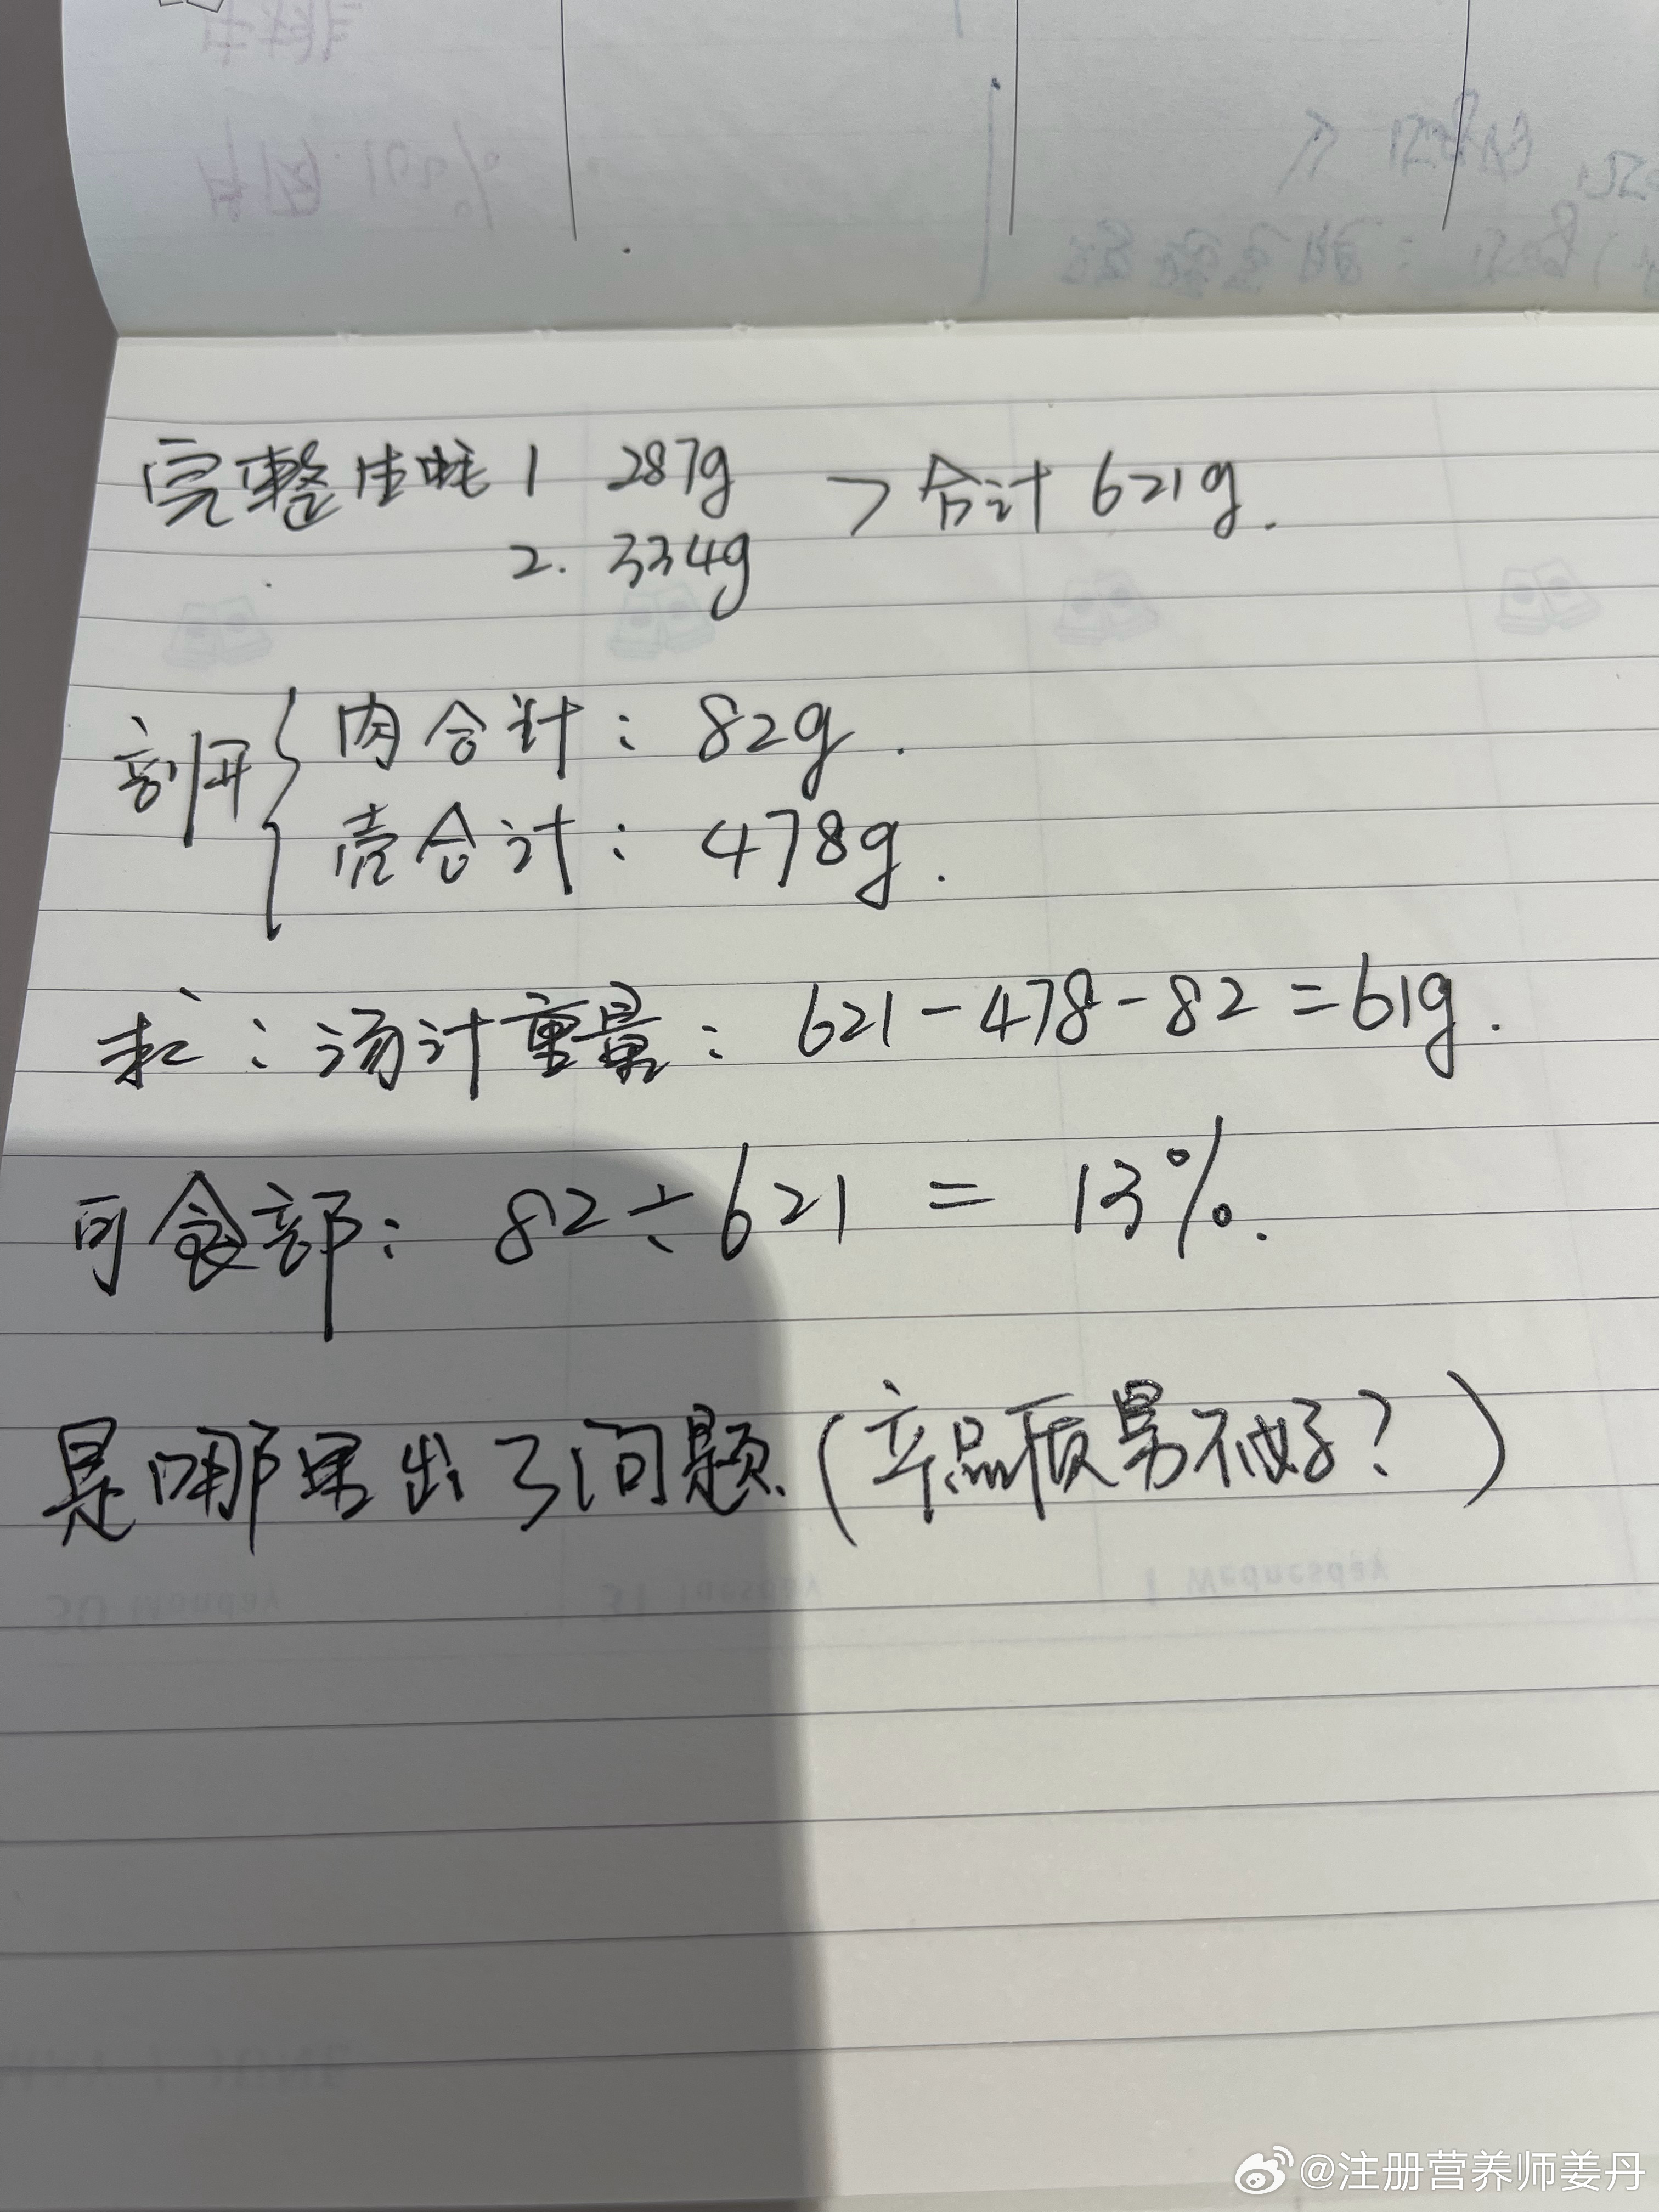 完整生蚝 1 287g > 合计 621g.
2. 334g
剖开 { 肉合计: 82g.
壳合计: 478g.
求: 汤汁重量: 621-478-82=61g.
可食部: 82÷621 = 13%.
是哪里出了问题(产品质量不好?)
30 Monday
31 Tuesday
1 Wednesday
MAY / JUNE
@注册营养师姜丹